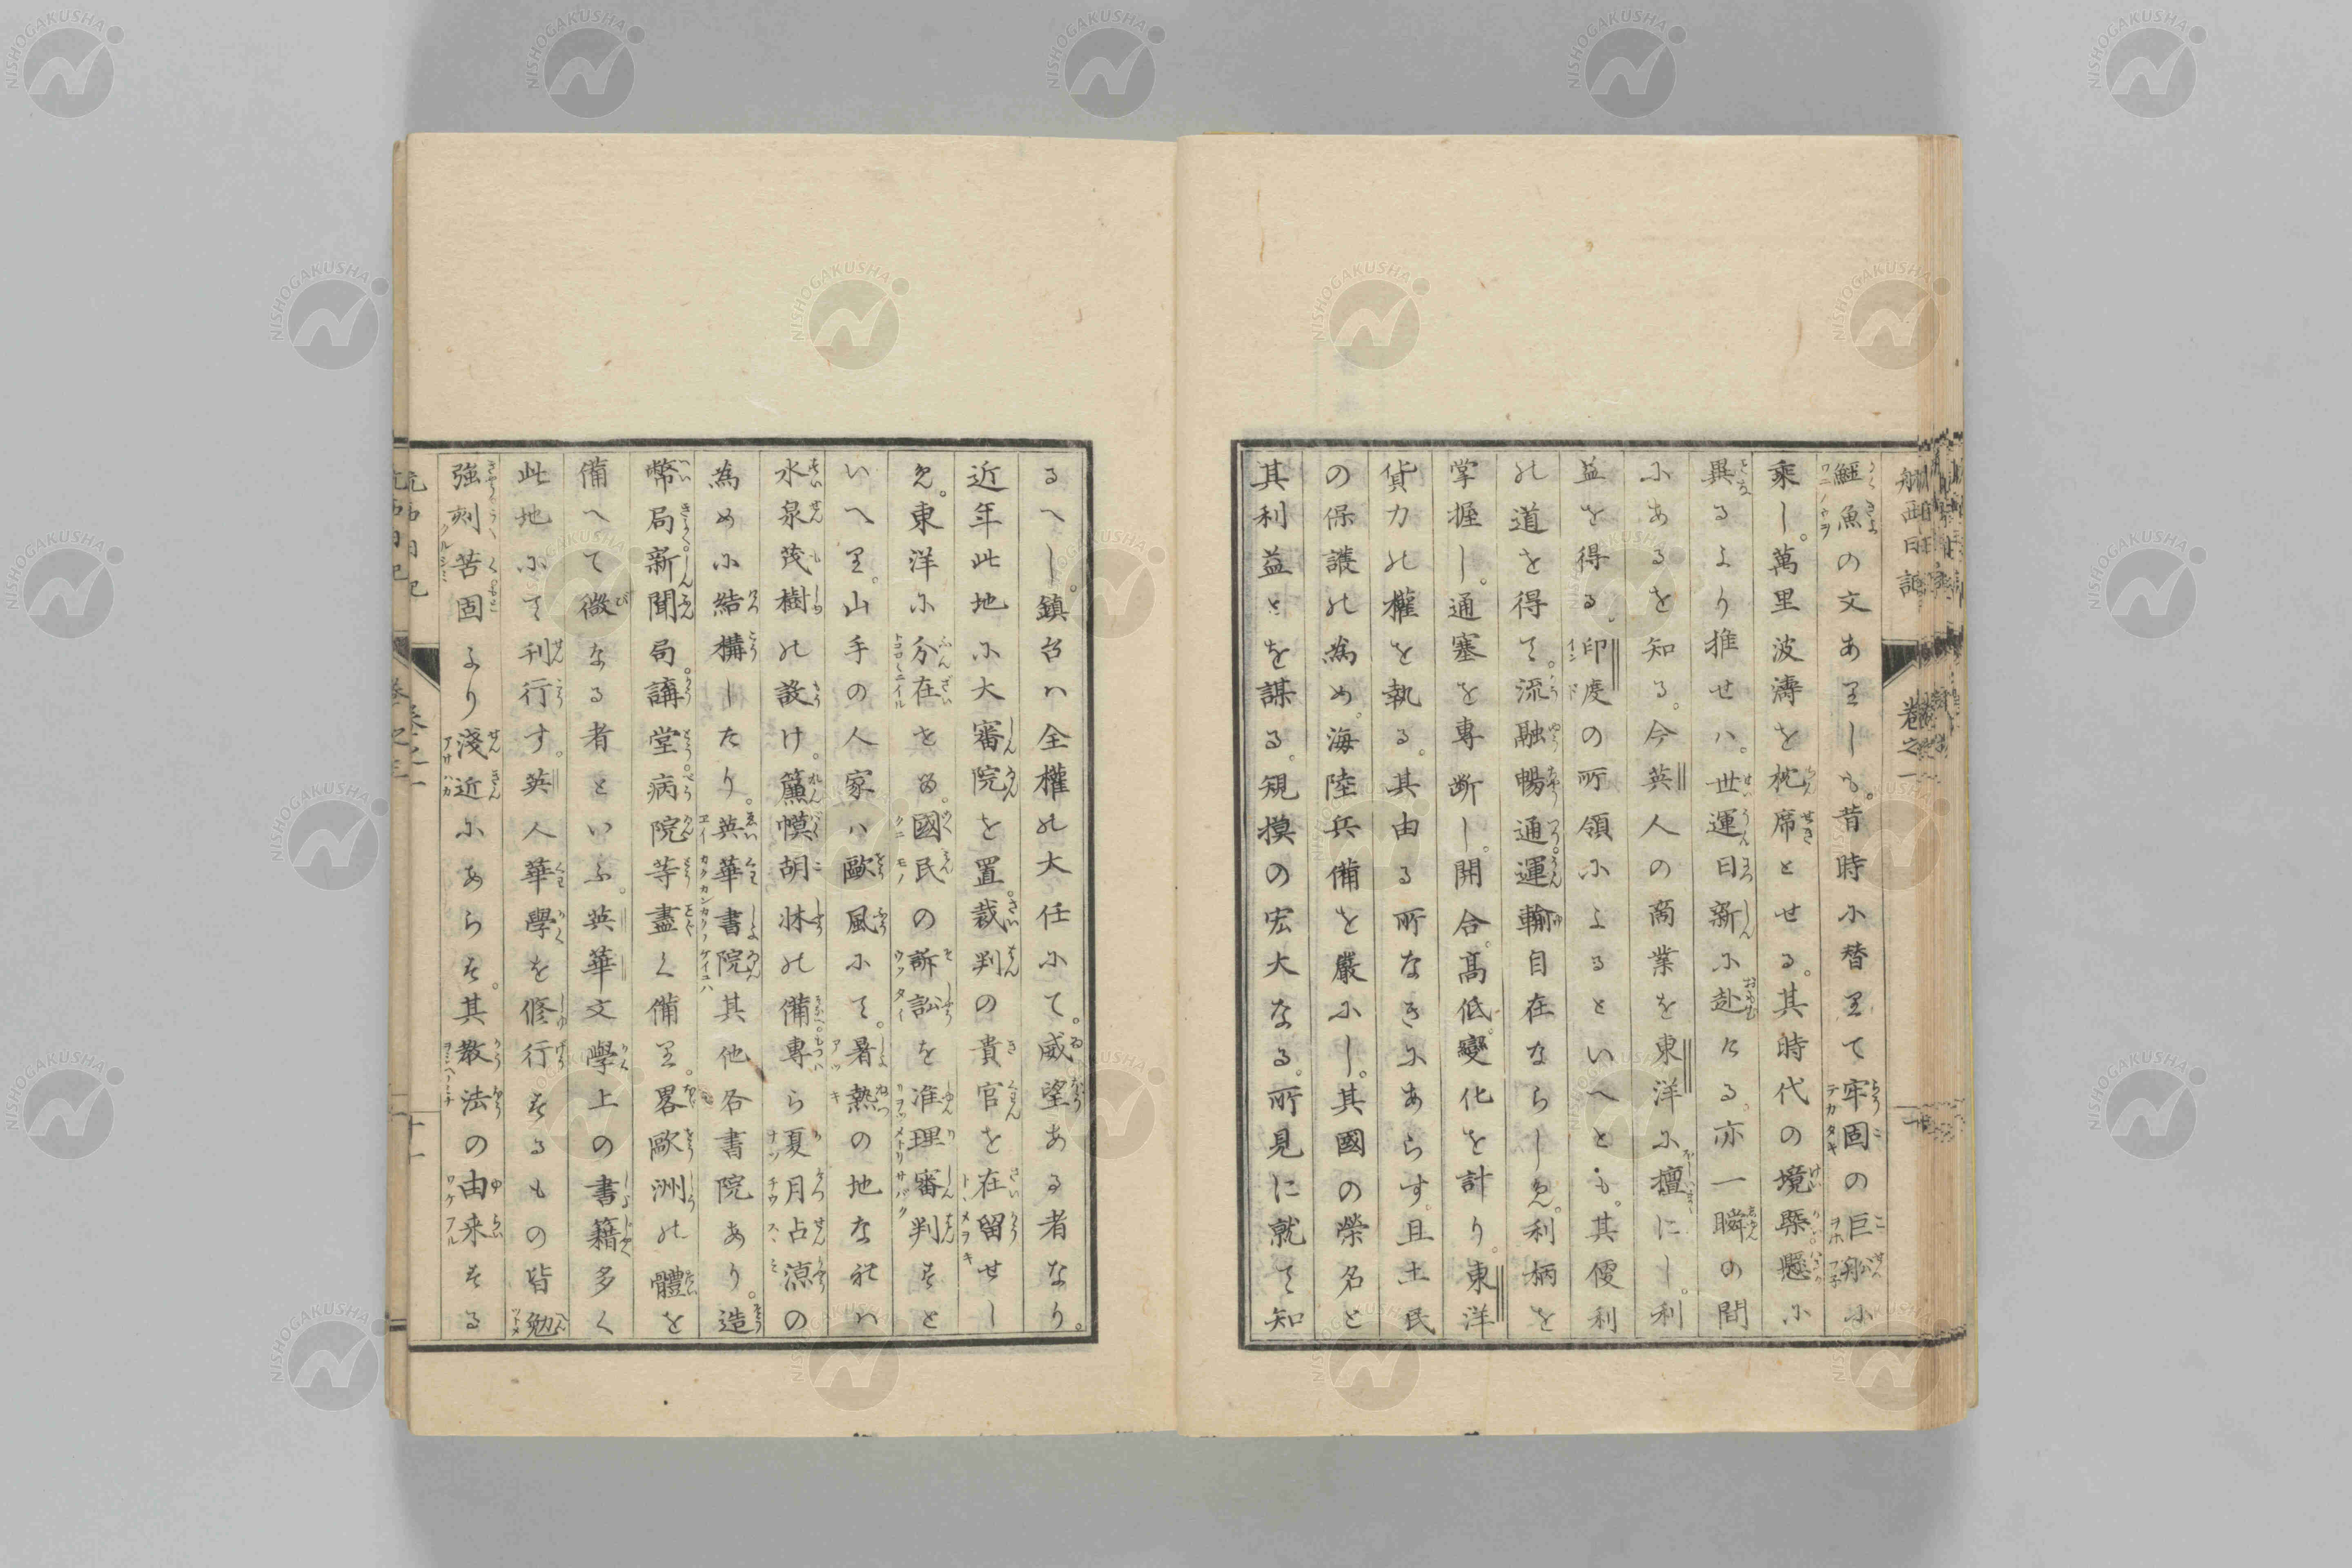 航西日記 卷之一
鱷魚の文ありしも。昔時に替りて牢固の巨舶に
乘し。萬里波濤を枕席とせる。其時代の境界懸に
異るより推せハ。世運日新に赴ける。亦一瞬の間
にあるを知る。今英人の商業を東洋に擅にし。利
益を得る。印度の所領によるといへとも。其便利
の道を得て。流融暢通。運輸自在ならしめ。利柄を
掌握し。通塞を專断し。開合。髙低。變化を計り。東洋
貨力の權を執る。其由る所なきにあらす。且土民
の保護の為め。海陸兵備を嚴にし。其國の榮名と
其利益とを謀る。規摸の宏大なる。所見に就て知
るへし。鎮台ハ全權の大任にて。威望ある者なり。
近年此地に大審院を置。裁判の貴官を在留せし
め。東洋に分在する。國民の訴訟を准理審判すと
いへり。山手の人家ハ歐風にて。暑熱の地なれハ
水泉茂樹の設け。簾幙胡牀の備。專ら夏月占涼の
為めに結構したり。英華書院其他各書院あり。造
幣局。新聞局。講堂。病院等盡く備り。畧歐洲の體を
備へて微なる者といふ。英華文學上の書籍多く
此地にて刊行す。英人華學を修行するもの皆勉
強刻苦固より淺近にあらす。其教法の由来する